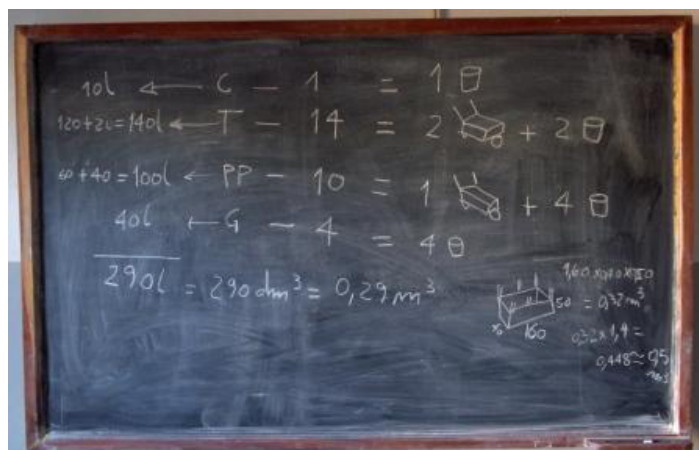 10l ← C — 1 = 1
120+20=140l ← T — 14 = 2 + 2
60+40=100l ← PP — 10 = 1 + 4
40l ← G — 4 = 4
290l = 290 dm³ = 0,29 m³
1,60 x 0,40 x 0,50
= 0,32 m³
50
160
0,32 x 1,4 =
0,448 ≈ 0,5
m³